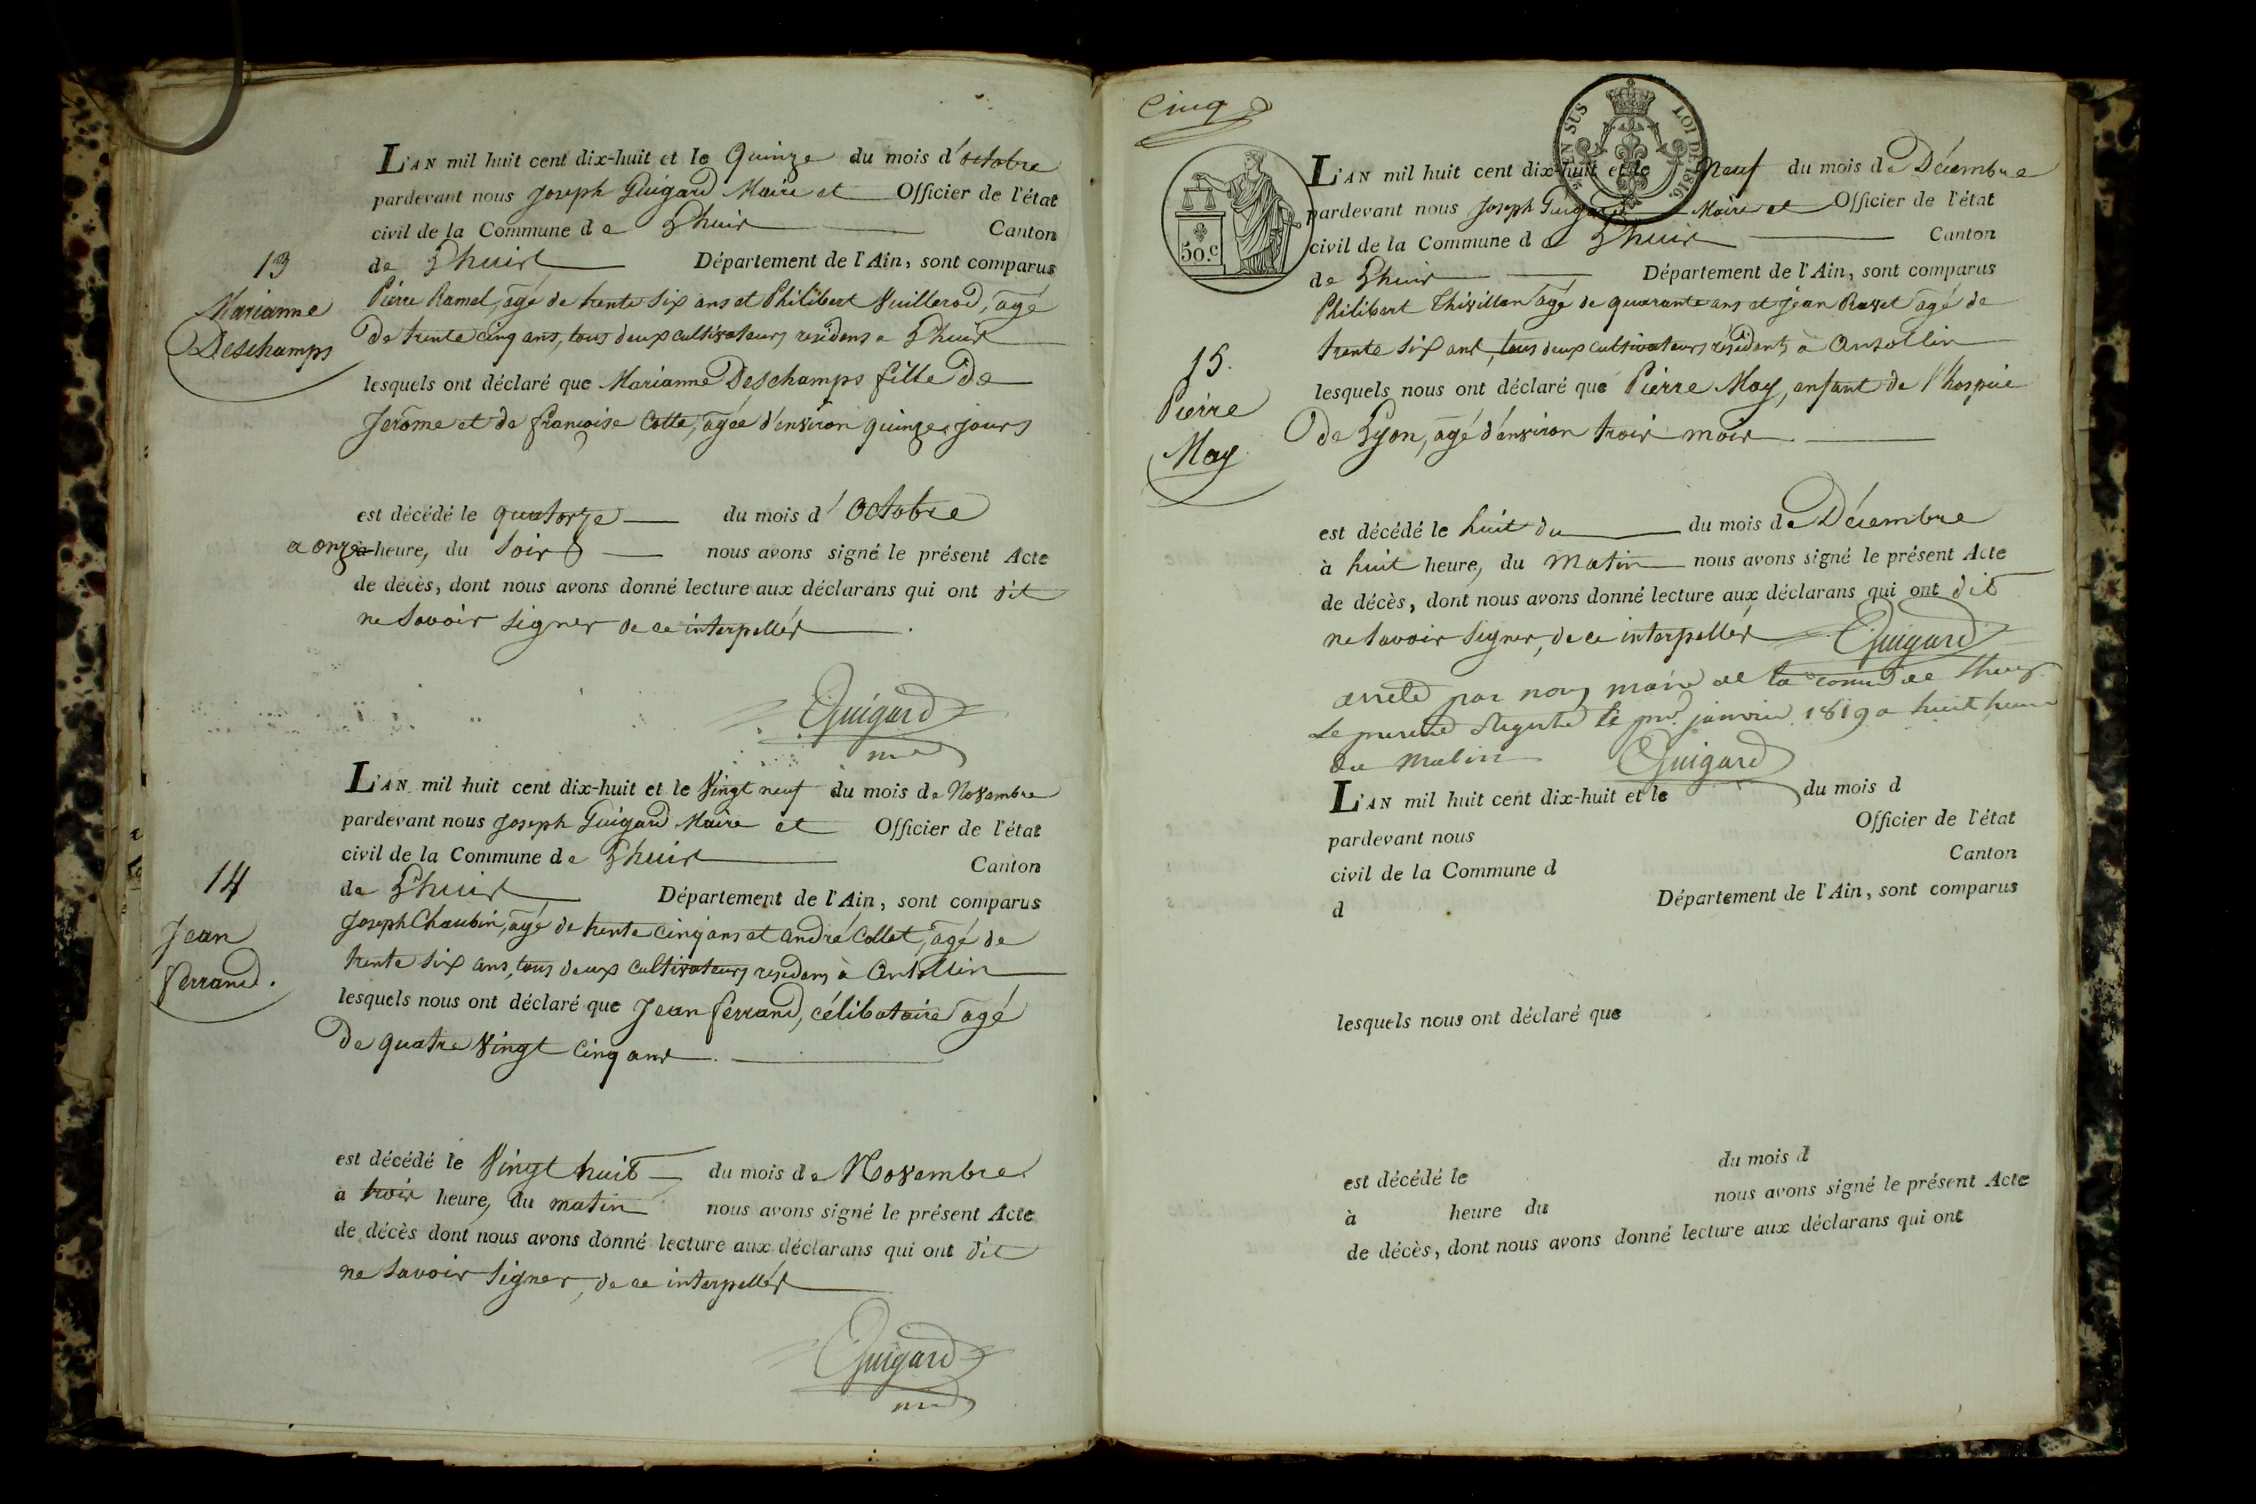 13
Marianne
Deschamps
L'AN mil huit cent dix-huit et le Quinze du mois d'octobre
pardevant nous Joseph Guigard Maire et Officier de l'état
civil de la Commune de Lhuis Canton
de Lhuis Département de l'Ain, sont comparus
Pierre Ramel, agé de trente six ans et Philibert Vuillerod, agé
de trente cinq ans, tous deux cultivateurs residens a Lhuis
lesquels ont déclaré que Marianne Deschamps fille de
Jerôme et de françoise Cotte, agée d'environ quinze jours
est décédé le quatorze du mois d'Octobre
a onze heure, du Soir nous avons signé le présent Acte
de décès, dont nous avons donné lecture aux déclarans qui ont dit
ne Savoir Signer de ce interpellés
Guigard
14
Jean
ferrand.
L'AN mil huit cent dix-huit et le Vingt neuf du mois de Novembre
pardevant nous Joseph Guigard Maire et Officier de l'état
civil de la Commune de Lhuis Canton
de Lhuis Département de l'Ain, sont comparus
Joseph Chaubin, agé de trente cinq ans et andré Collet, agé de
trente six ans, tous deux cultivateurs residens à Ansollin
lesquels nous ont déclaré que Jean ferrand, célibataire agé
de quatre Vingt cinq ans
est décédé le Vingt huit du mois de Novembre
à trois heure, du matin nous avons signé le présent Acte
de décès dont nous avons donné lecture aux déclarans qui ont dit
ne Savoir Signer, de ce interpellés
Guigard
Cinq
EN SUS LOI DE 1816.
50.c
15.
Pierre
May
L'AN mil huit cent dix-huit et le Neuf du mois de Décembre
pardevant nous Joseph Guigard Maire et Officier de l'état
civil de la Commune de Lhuis Canton
de Lhuis Département de l'Ain, sont comparus
Philibert Thivillon agé de quarante ans et Jean Ravet agé de
trente six ans, tous deux cultivateurs résidents à Ansollin
lesquels nous ont déclaré que Pierre May, enfant de l'hospice
de Lyon, agé d'environ trois mois
est décédé le huit du du mois de Décembre
à huit heure, du Matin nous avons signé le présent Acte
de décès, dont nous avons donné lecture aux déclarans qui ont dit
ne Savoir Signer, de ce interpellés Guigard
arrêté par nous maire de la comm de Lhuis
Le présent Registre le pr janvier 1819 a huit heure
du Matin Guigard
L'AN mil huit cent dix-huit et le du mois d
pardevant nous Officier de l'état
civil de la Commune d Canton
d Département de l'Ain, sont comparus
lesquels nous ont déclaré que
est décédé le du mois d
à heure du nous avons signé le présent Acte
de décès, dont nous avons donné lecture aux déclarans qui ont